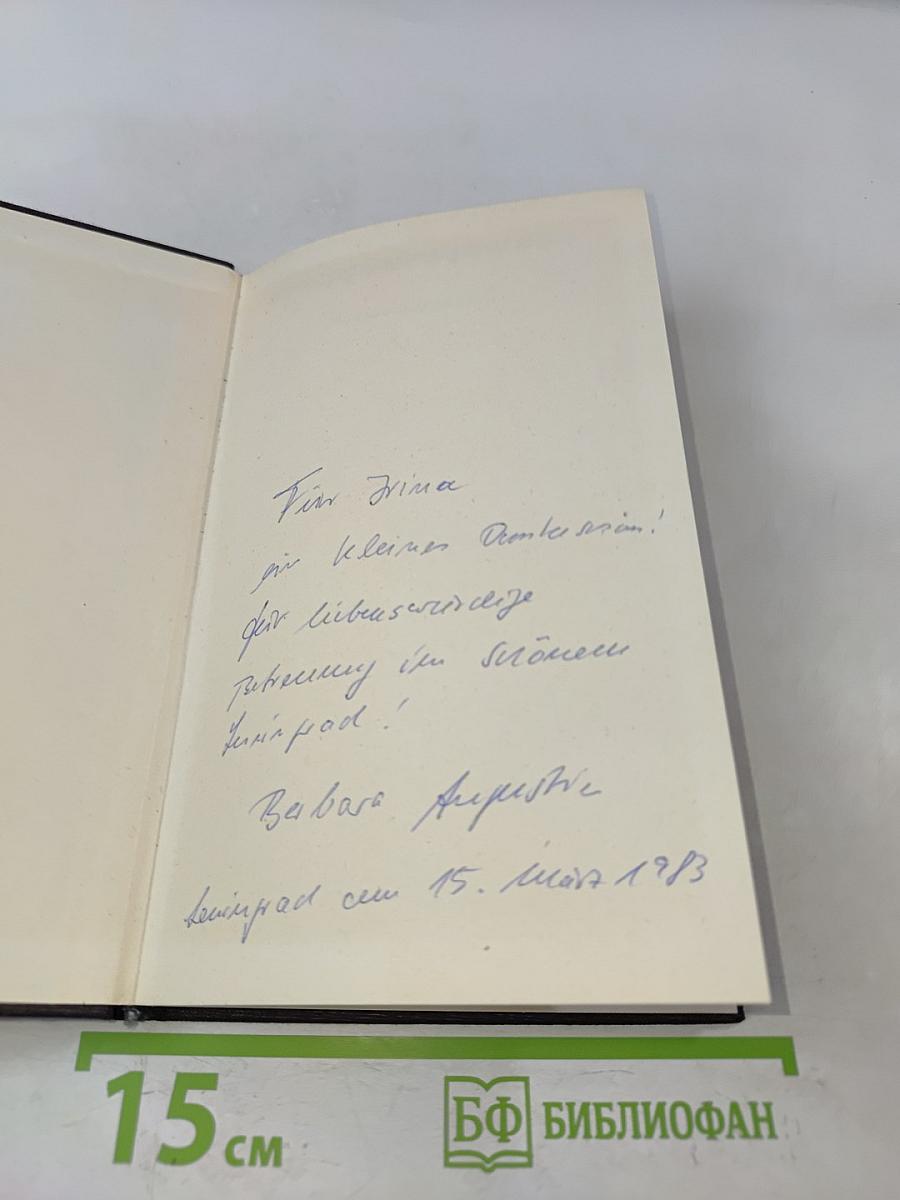 Für Irina
ein kleines Dankeschön!
für liebenswürdige
Betreuung im schönen
Leningrad!
Barbara Augustin
Leningrad am 15. März 1983
15 см
БФ БИБЛИОФАН